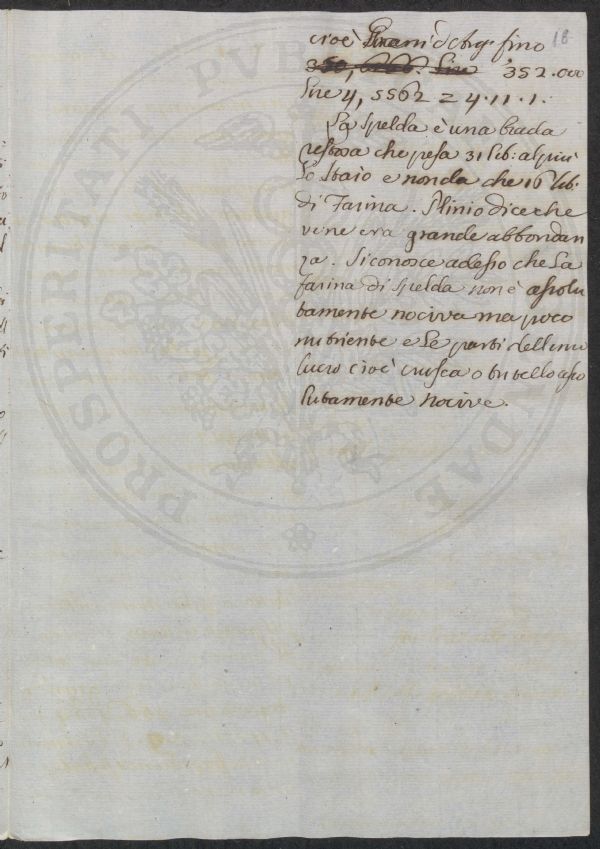 18
cioè Grani d'Arg. fino
350, 6266. Lire 352.000
lire 4, 5562 = 4.11.1.
La Spelda è una biada
restosa che pesa 31 lib: al più
lo staio e non da che 16 lib.
di Farina. Plinio dice che
ve ne era grande abbondan
za. Si conosce adesso che la
farina di Spelda non è assolu
tamente nociva ma poco
nutriente e le parti dell'invi
lucro cioè crusca o tritello asso
lutamente nocive.
PROSPERITATI PVB
VDAE